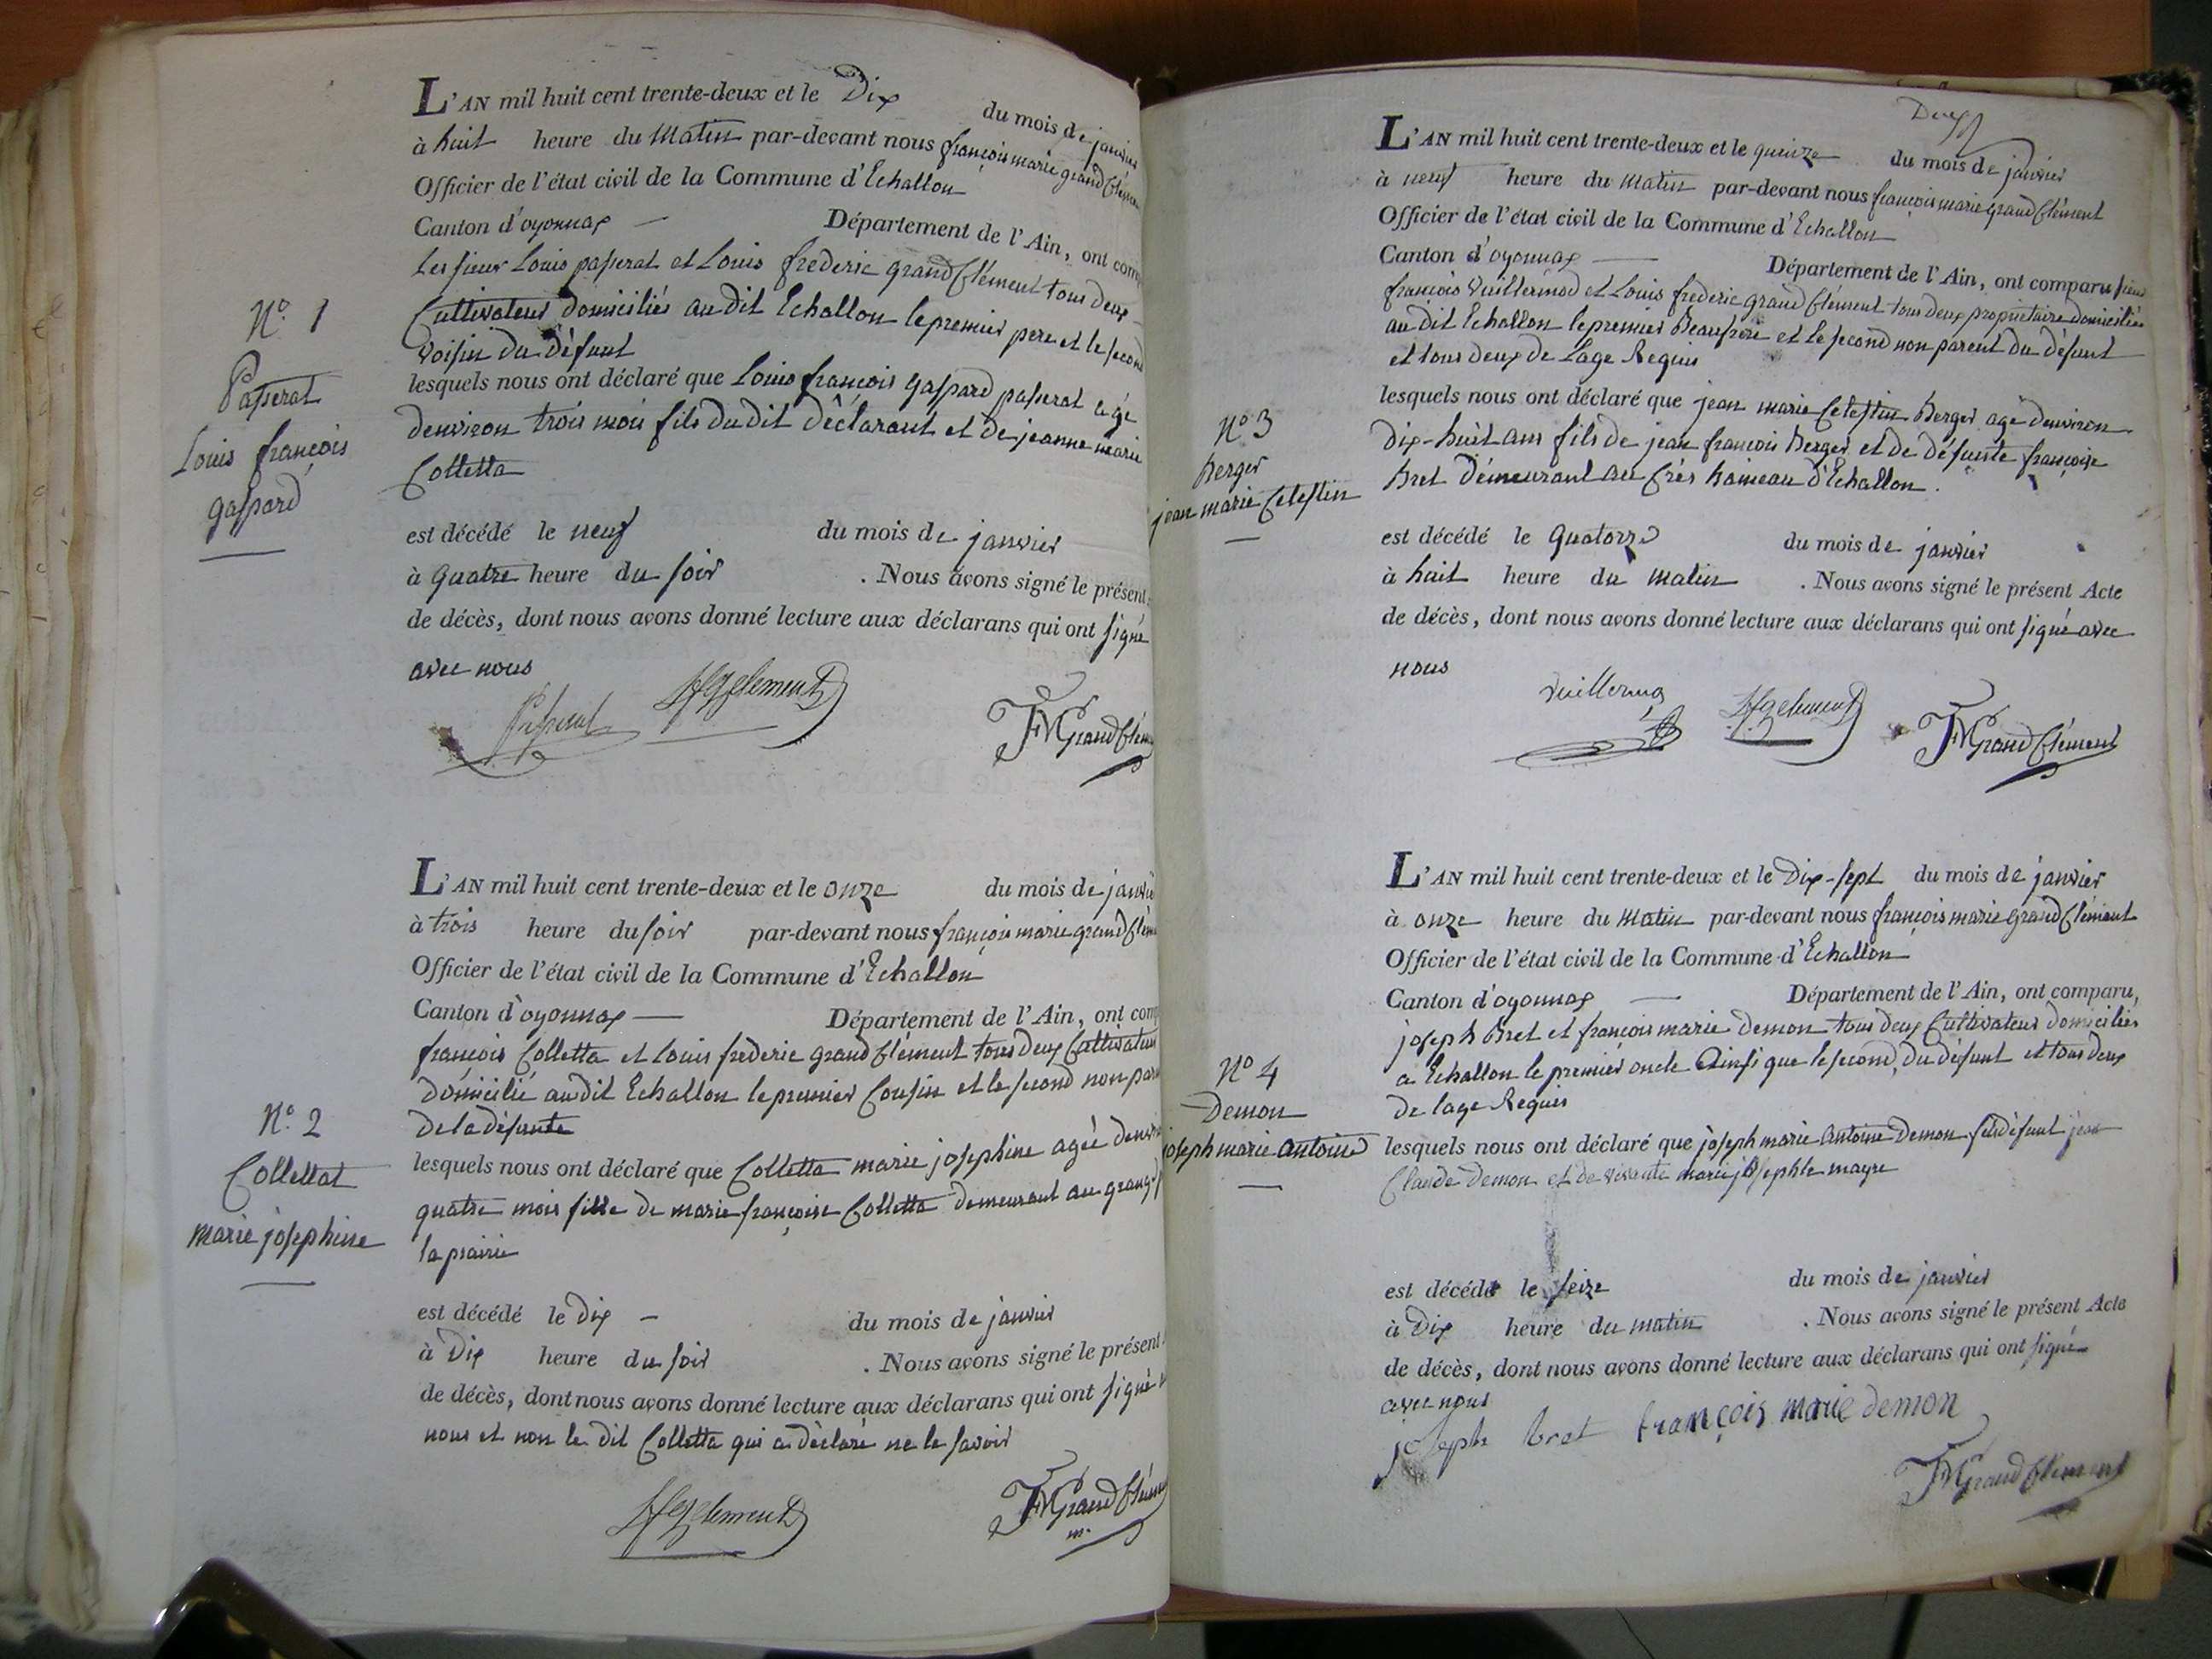 L'AN mil huit cent trente-deux et le Dix du mois de janvier
à huit heure du Matin par-devant nous françois marie grand Clément
Officier de l'état civil de la Commune d'Echallon
Canton d'oyonnax — Département de l'Ain, ont com
Les sieur Louis passerat et Louis frederic grand Clément tous deux
Cultivateur domiciliés au dit Echallon le premier pere et le second
voisin du défunt
N.º 1
Passerat
Louis françois
gaspard
lesquels nous ont déclaré que Louis françois gaspard passerat agé
denviron trois mois fils du dit déclarant et de jeanne marie
Colletta
est décédé le neuf du mois de janvier
à quatre heure du soir . Nous avons signé le présent
de décès, dont nous avons donné lecture aux déclarans qui ont signé
avec nous
Passerat LfgClement FMGrand Clém
L'AN mil huit cent trente-deux et le onze du mois de janvie
à trois heure du soir par-devant nous françois marie grand Clém
Officier de l'état civil de la Commune d'Echallon
Canton d'oyonnax — Département de l'Ain, ont com
françois Colletta et Louis frederic grand Clément tous deux Cultivateur
domicilié audit Echallon le premier Cousin et le second non par
de la défunte
N.º 2
Collettat
marie josephine
lesquels nous ont déclaré que Colletta marie josephine agée denvi
quatre mois fille de marie françoise Colletta demeurant au grang
la prairie
est décédé le dix — du mois de janvier
à Dix heure du soir . Nous avons signé le présent
de décès, dont nous avons donné lecture aux déclarans qui ont signé
nous et non le dit Colletta qui a déclaré ne le savoir
LfgClement FMGrand Clém
m.
Deux
L'AN mil huit cent trente-deux et le quinze du mois de janvier
à neuf heure du matin par-devant nous françois marie grand Clément
Officier de l'état civil de la Commune d'Echallon
Canton d'oyonnax — Département de l'Ain, ont comparu sieur
françois Vuillermod et Louis frederic grand Clément tous deux propriétaire domiciliés
au dit Echallon le premier Beaufrere et le second non parent du défunt
et tous deux de Lage Requis
Nº 3
Berger
jean marie Celestin
lesquels nous ont déclaré que jean marie Celestin Berger agé denviron
Dix-huit ans fils de jean françois Berger et de défunte françoise
Bret demeurant au Crés hameau d'Echallon.
est décédé le Quatorze du mois de janvier
à huit heure du matin . Nous avons signé le présent Acte
de décès, dont nous avons donné lecture aux déclarans qui ont signé avec
nous
Vuillermoz LfgClement FMGrand Clément
L'AN mil huit cent trente-deux et le Dix-sept du mois de janvier
à onze heure du matin par-devant nous françois marie grand Clément
Officier de l'état civil de la Commune d'Echallon
Canton d'oyonnax — Département de l'Ain, ont comparu,
joseph Bret et françois marie demon tous deux Cultivateur domiciliés
a Echallon le premier oncle Ainsi que le second, du défunt et tous deux
de lage Requis
Nº 4
Demon
joseph marie Antoine
lesquels nous ont déclaré que joseph marie Antoine Demon défunt jean
Claude demon et de vivante marie josephte mayre
est décédé le seize du mois de janvier
à Dix heure du matin . Nous avons signé le présent Acte
de décès, dont nous avons donné lecture aux déclarans qui ont signé
avec nous
joseph bret françois marie demon
FMGrand Clément